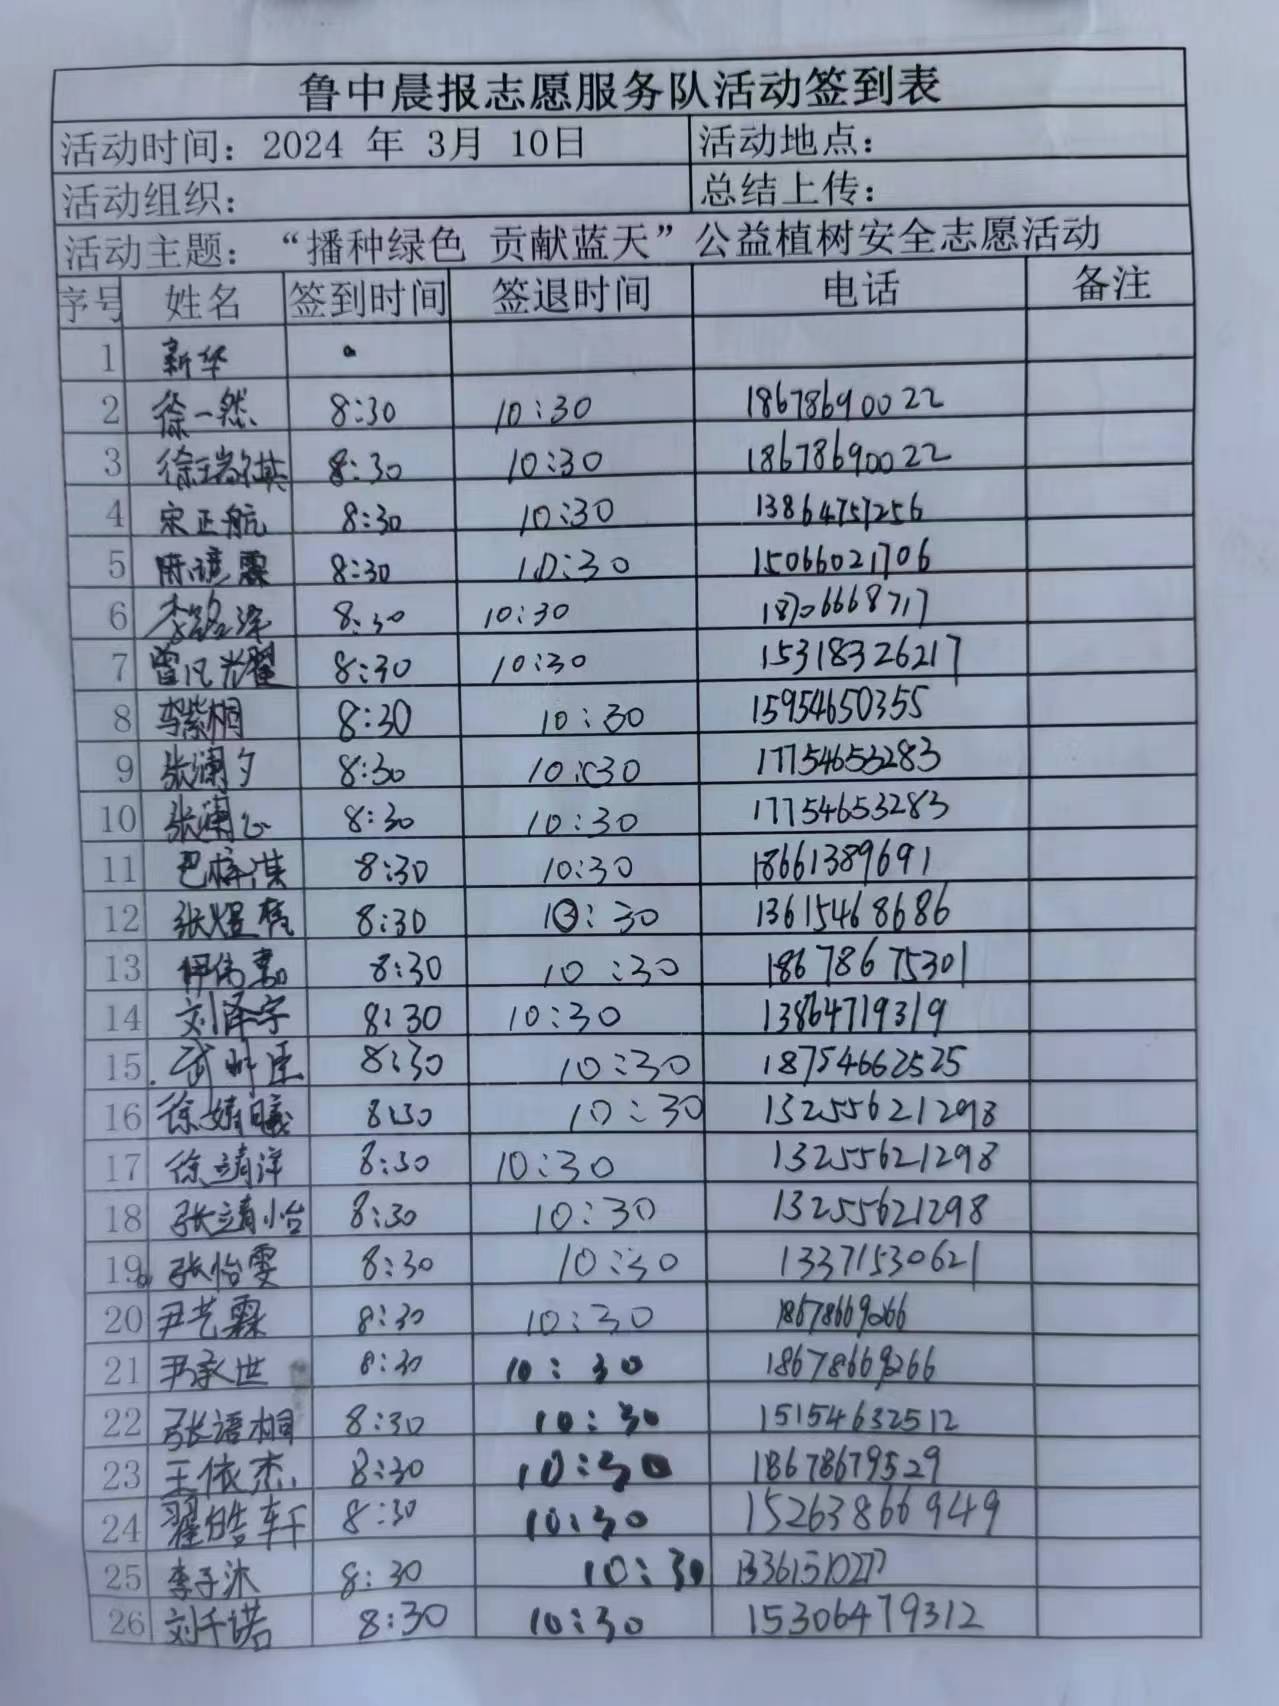 鲁中晨报志愿服务队活动签到表
活动时间：2024 年 3月 10日 活动地点：
活动组织： 总结上传：
活动主题：“播种绿色 贡献蓝天”公益植树安全志愿活动
序号 姓名 签到时间 签退时间 电话 备注
1 新华
2 徐一然 8:30 10:30 18678690022
3 8:30 10:30 18678690022
4 宋正航 8:30 10:30 13864757256
5 8:30 10:30 15066021706
6 8:30 10:30 18706668717
7 曾凡光耀 8:30 10:30 15318326217
8 8:30 10:30 15954650355
9 张澜夕 8:30 10:30 17754653283
10 8:30 10:30 17754653283
11 巴梓淇 8:30 10:30 18661389691
12 8:30 10:30 13615468686
13 8:30 10:30 18678675301
14 刘泽宇 8:30 10:30 13864719319
15 8:30 10:30 18754662525
16 徐婧曦 8:30 10:30 13255621298
17 徐靖洋 8:30 10:30 13255621298
18 张靖怡 8:30 10:30 13255621298
19 张怡雯 8:30 10:30 13371530621
20 尹艺霖 8:30 10:30 18678669266
21 尹承世 8:30 10:30 18678669266
22 张语桐 8:30 10:30 15154632512
23 王依杰 8:30 10:30 18678679529
24 翟皓轩 8:30 10:30 15263866949
25 李子沐 8:30 10:30 13361510277
26 刘千诺 8:30 10:30 15306479312